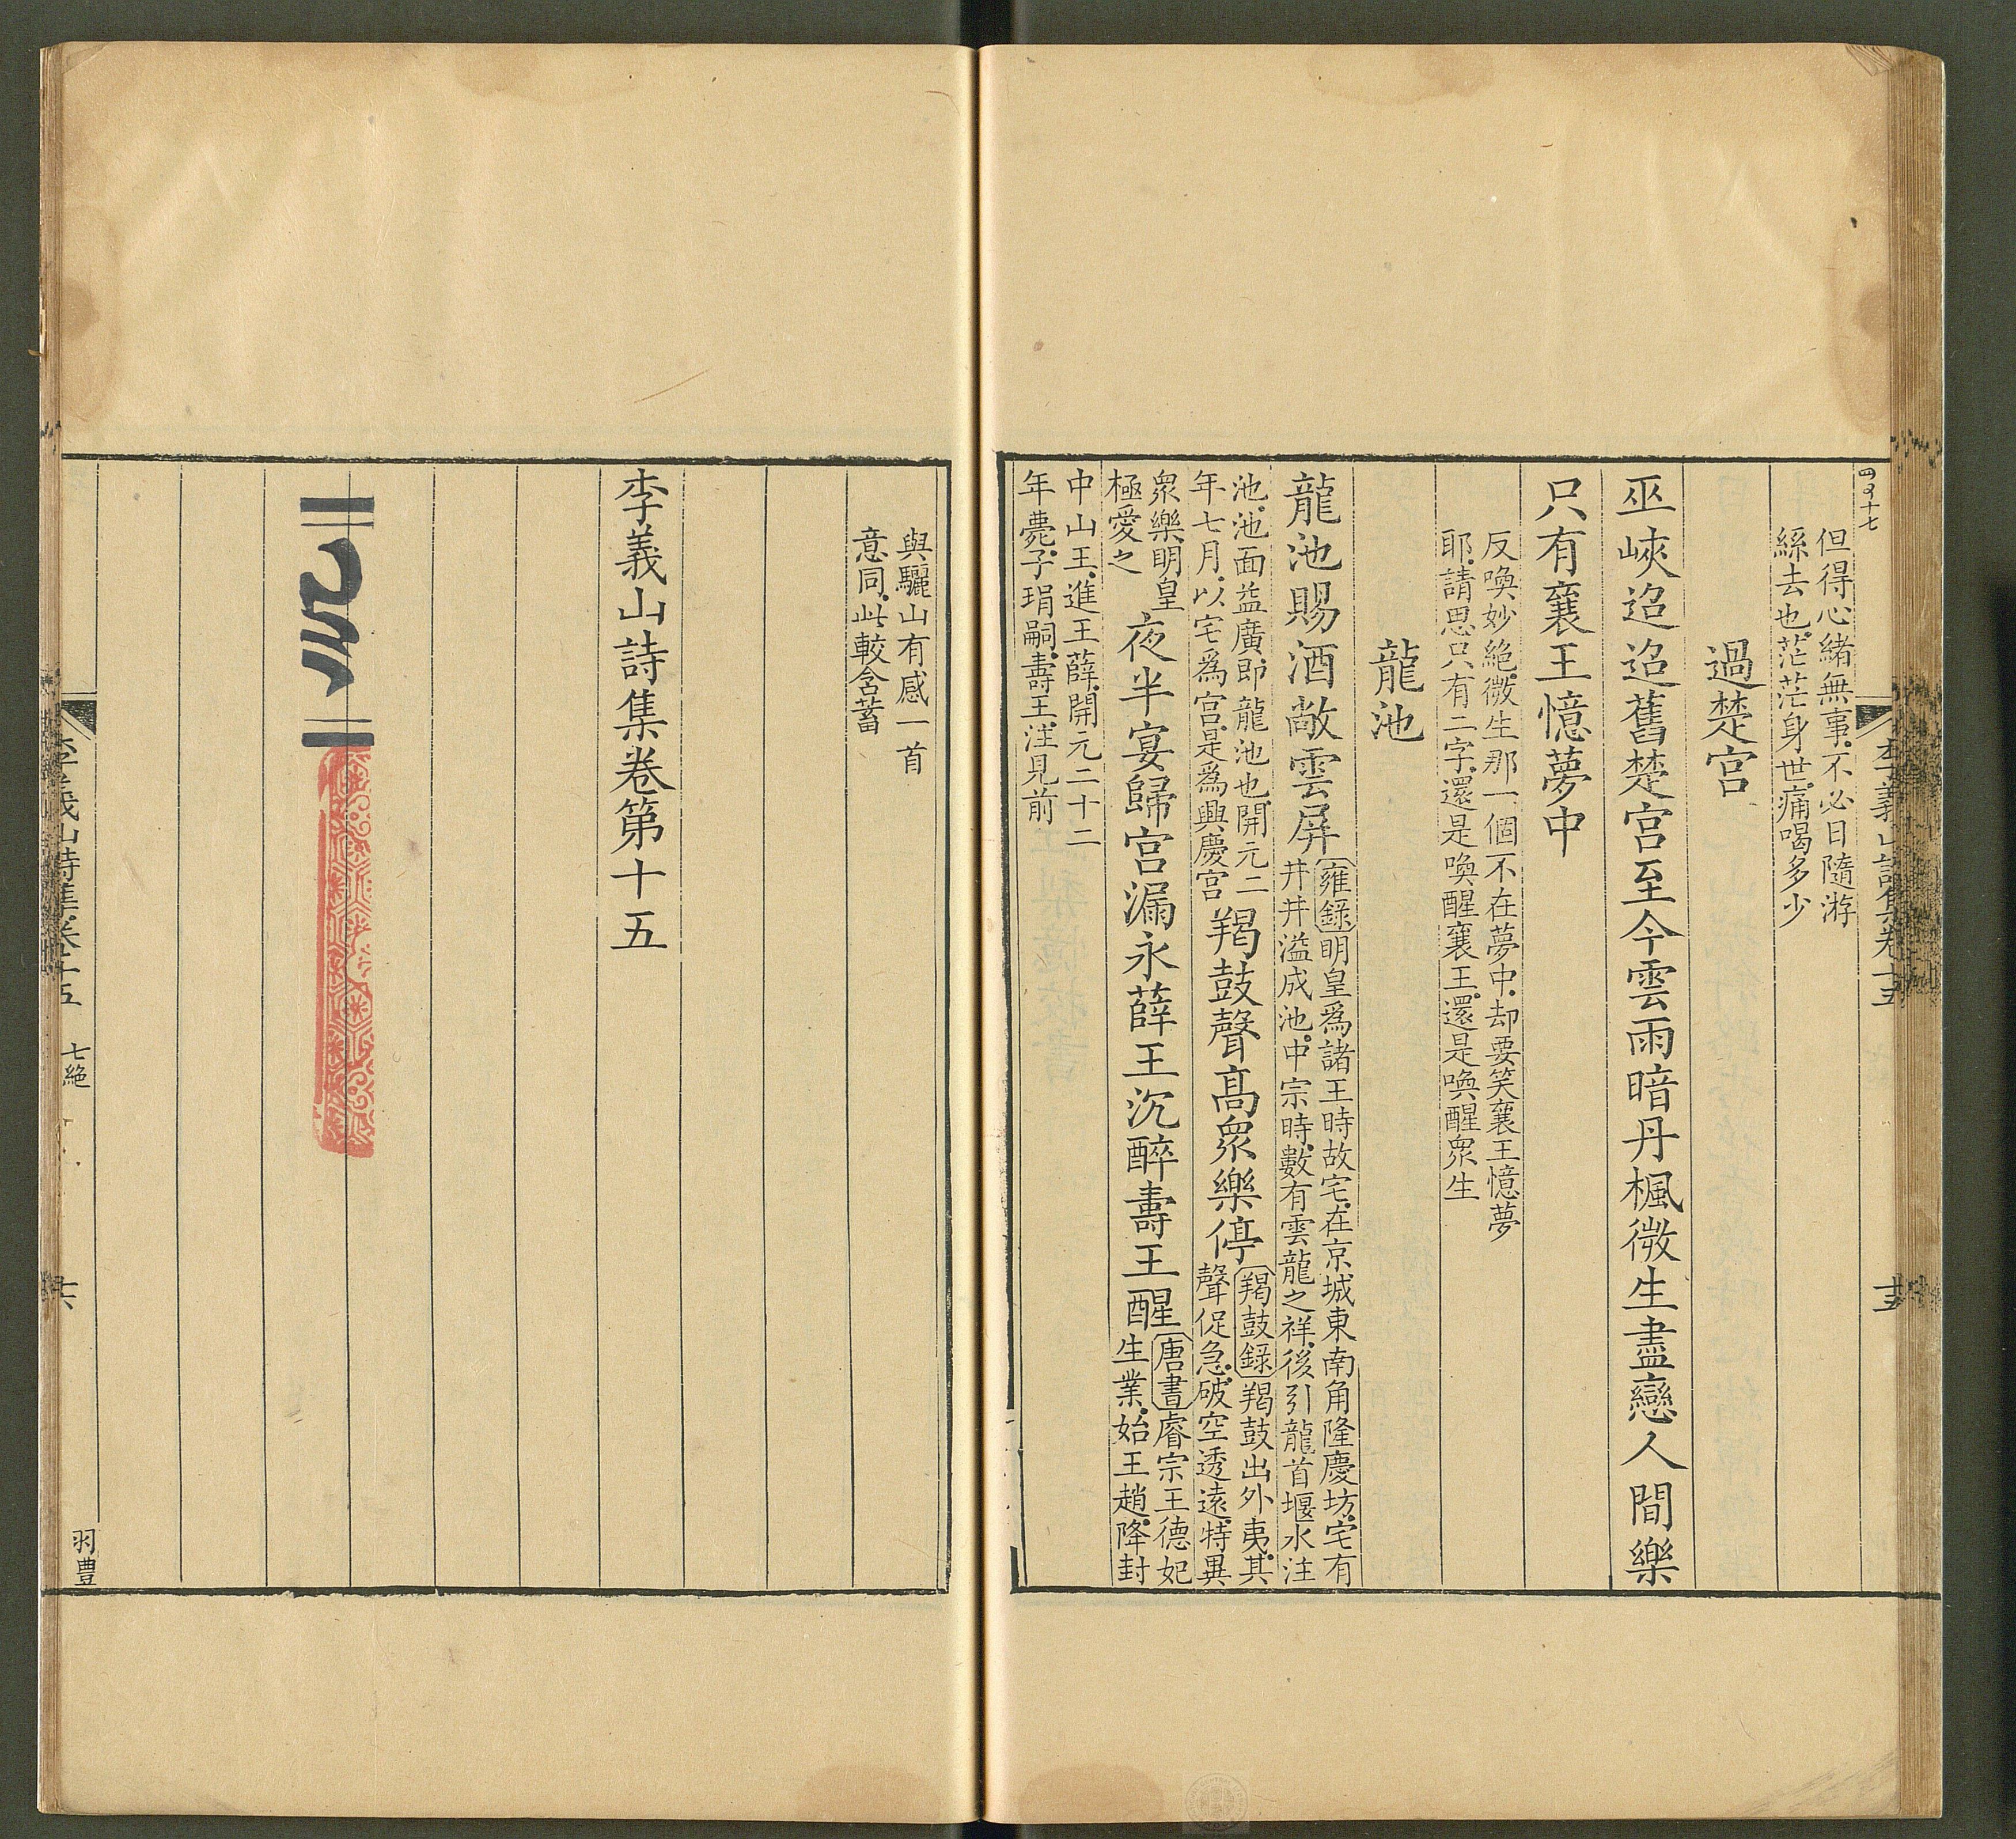 四百十七
但得心緒無事不必日隨游
絲去也茫茫身世痛喝多少
過楚宮
巫峽迢迢舊楚宮至今雲雨暗丹楓微生盡戀人間樂
只有襄王憶夢中
反喚妙絕微生那一個不在夢中却要笑襄王憶夢
耶請思只有二字還是喚醒襄王還是喚醒眾生
龍池
龍池賜酒敞雲屏
雍錄明皇為諸王時故宅在京城東南角隆慶坊宅有
井井溢成池中宗時數有雲龍之祥後引龍首堰水注
池池面益廣即龍池也開元二
年七月以宅為宮是為興慶宮
羯鼓聲高眾樂停
羯鼓錄羯鼓出外夷其
聲促急破空透遠特異
眾樂明皇
極愛之
夜半宴歸宮漏永薛王沉醉壽王醒
唐書睿宗王德妃
生業始王趙降封
中山王進王薛開元二十二
年薨子琄嗣壽王注見前
李義山詩集卷十五
十五
與驪山有感一首
意同此較含蓄
李義山詩集卷第十五
李義山詩集卷十五
七絕
十六
羽豊